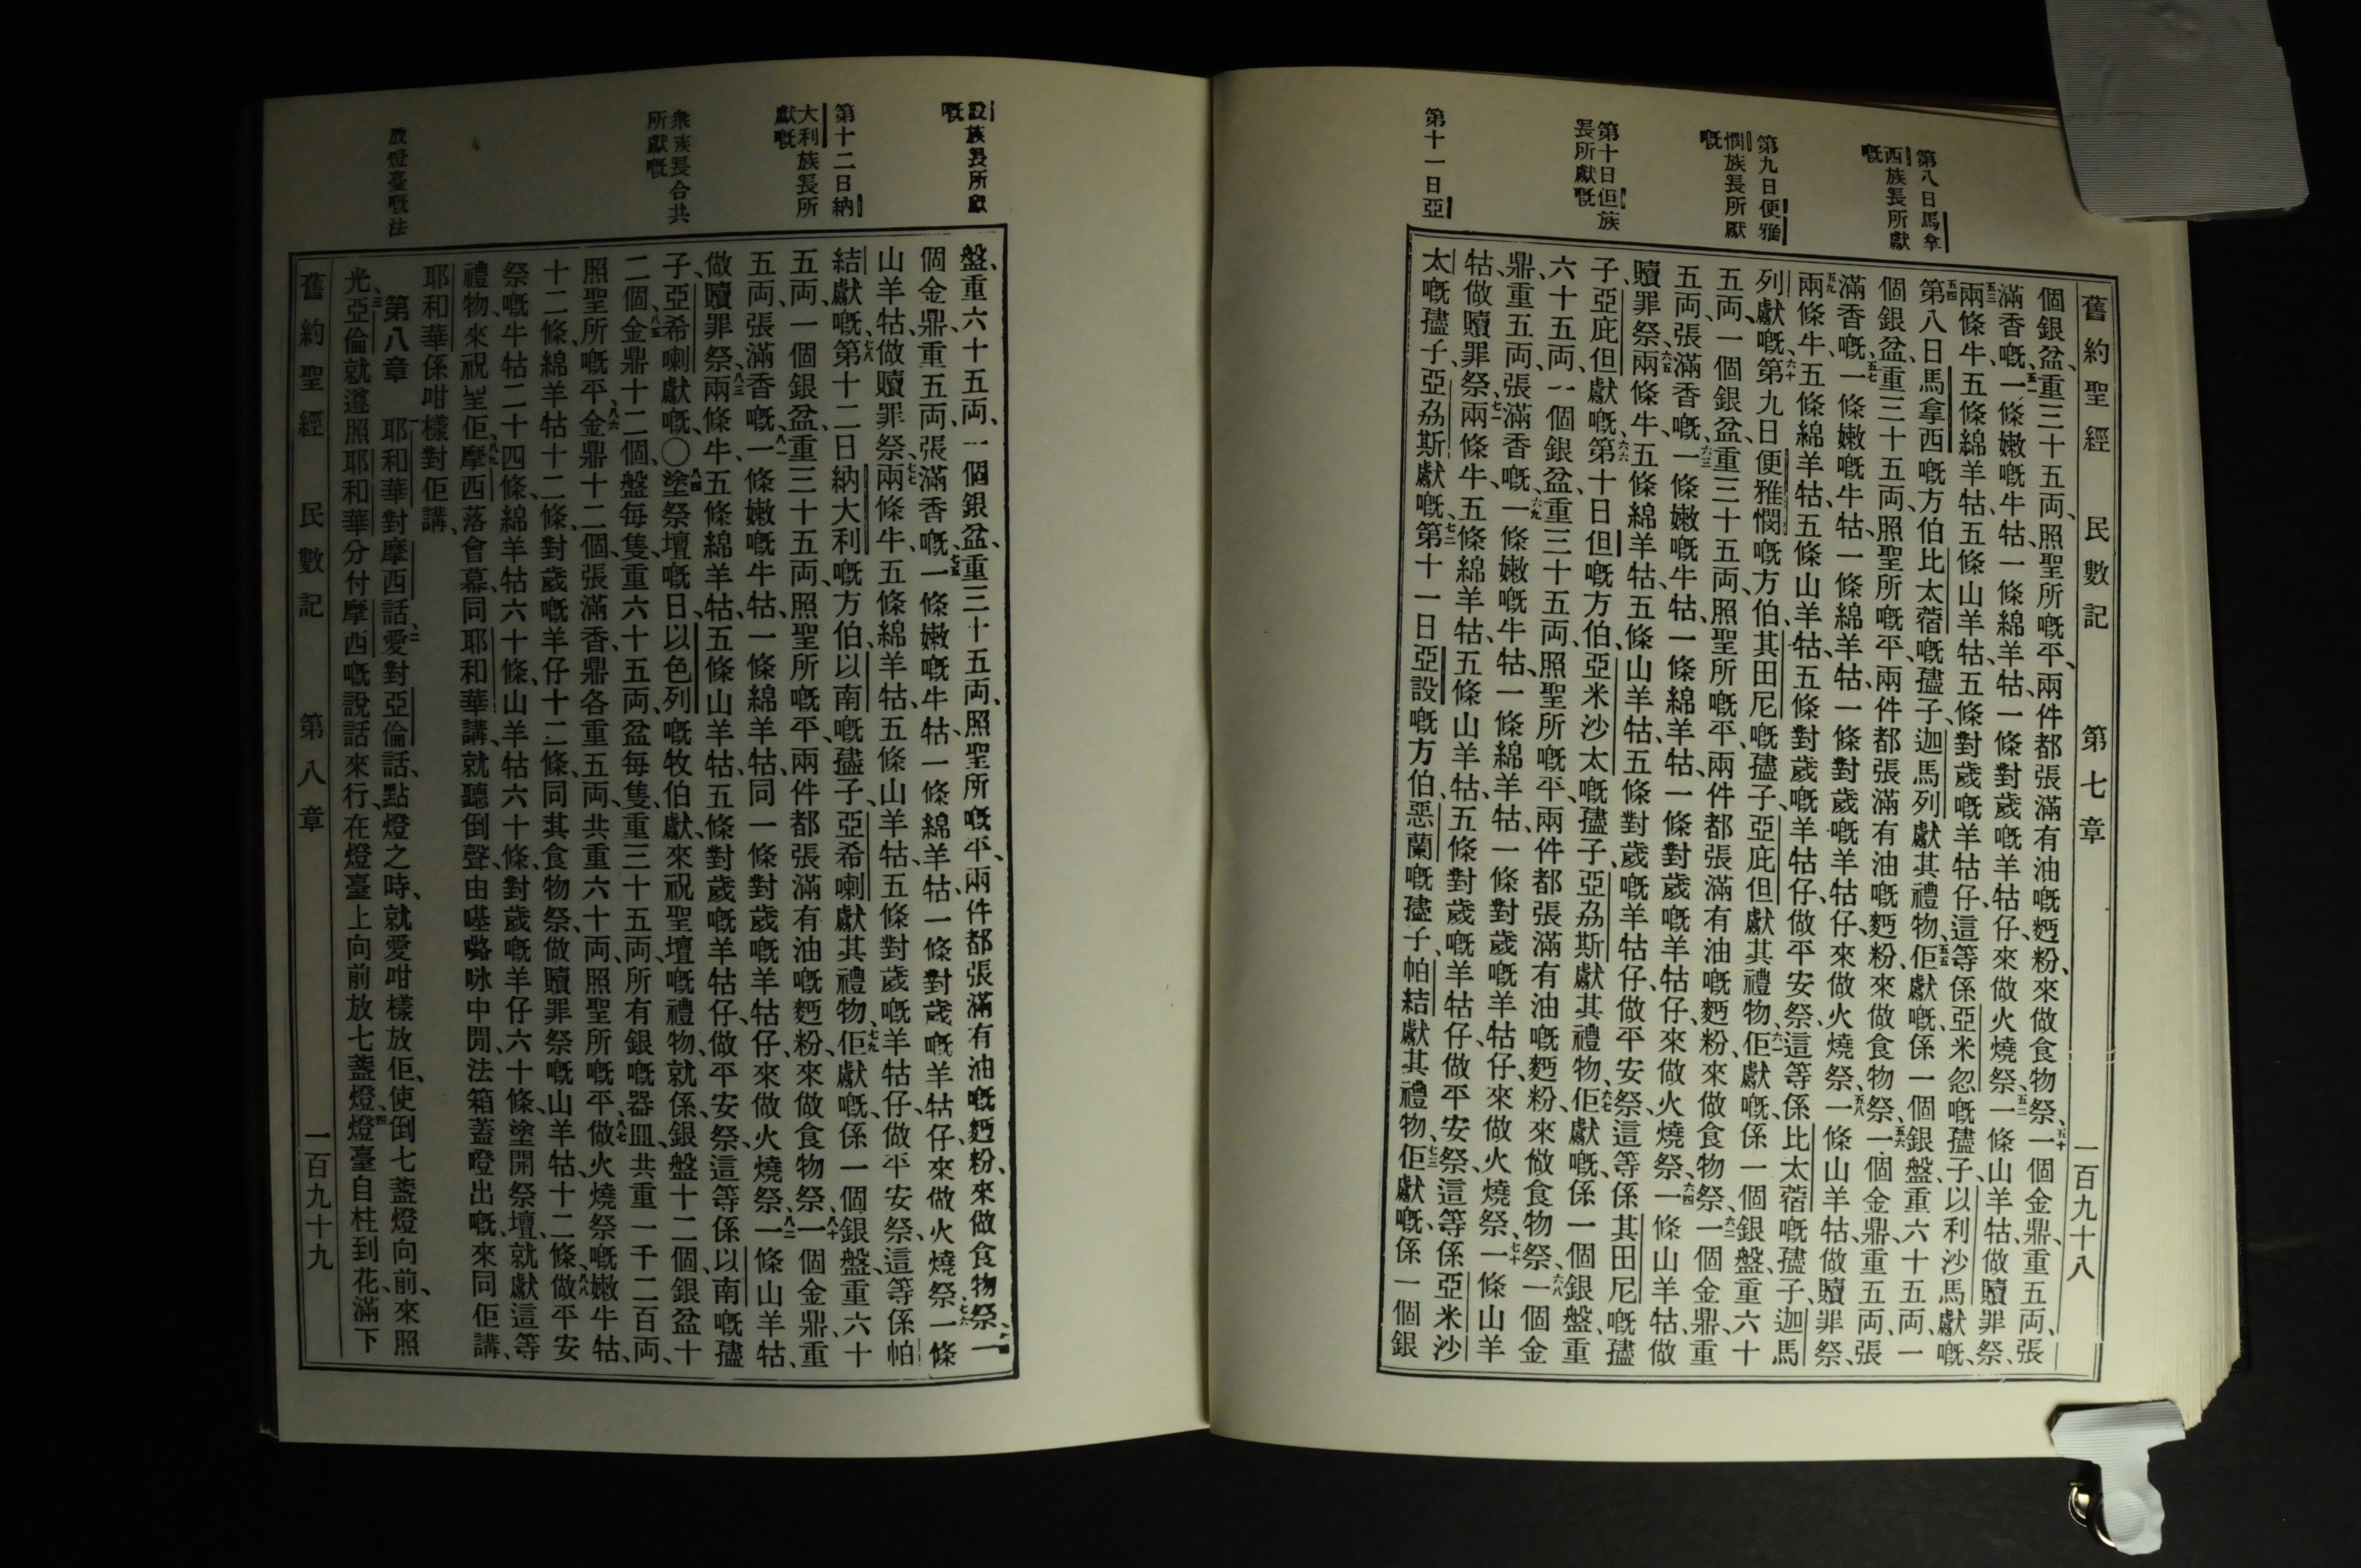 舊約聖經 民數記 第七章 一百九十八
第八日馬拿
西族長所獻
嘅
第九日便雅
憫族長所獻
嘅
第十日但族
長所獻嘅
第十一日亞
個銀盆、重三十五両、照聖所嘅平、兩件都張滿有油嘅麪粉、來做食物祭、五十一個金鼎、重五両、張
滿香嘅、五一一條嫩嘅牛牯、一條綿羊牯、一條對歲嘅羊牯仔、來做火燒祭、五二一條山羊牯、做贖罪祭、
五三兩條牛、五條綿羊牯、五條山羊牯、五條對歲嘅羊牯仔、這等係亞米忽嘅孻子、以利沙馬獻嘅、
五四第八日馬拿西嘅方伯比太蓿嘅孻子、迦馬列獻其禮物、五五佢獻嘅、係一個銀盤、重六十五両、一
個銀盆、重三十五両、照聖所嘅平、兩件都張滿有油嘅麪粉、來做食物祭、五六一個金鼎、重五両、張
滿香嘅、五七一條嫩嘅牛牯、一條綿羊牯、一條對歲嘅羊牯仔、來做火燒祭、五八一條山羊牯、做贖罪祭、
五九兩條牛、五條綿羊牯、五條山羊牯、五條對歲嘅羊牯仔、做平安祭、這等係比太蓿嘅孻子、迦馬
列獻嘅、六十第九日便雅憫嘅方伯、其田尼嘅孻子、亞庇但獻其禮物、六一佢獻嘅、係一個銀盤、重六十
五両、一個銀盆、重三十五両、照聖所嘅平、兩件都張滿有油嘅麪粉、來做食物祭、六二一個金鼎、重
五両、張滿香嘅、六三一條嫩嘅牛牯、一條綿羊牯、一條對歲嘅羊牯仔、來做火燒祭、六四一條山羊牯、做
贖罪祭、六五兩條牛、五條綿羊牯、五條山羊牯、五條對歲嘅羊牯仔、做平安祭、這等係其田尼嘅孻
子、亞庇但獻嘅、六六第十日但嘅方伯、亞米沙太嘅孻子、亞茘斯獻其禮物、六七佢獻嘅、係一個銀盤、重
六十五両、一個銀盆、重三十五両、照聖所嘅平、兩件都張滿有油嘅麪粉、來做食物祭、六八一個金
鼎、重五両、張滿香嘅、六九一條嫩嘅牛牯、一條綿羊牯、一條對歲嘅羊牯仔、來做火燒祭、七十一條山羊
牯、做贖罪祭、七一兩條牛、五條綿羊牯、五條山羊牯、五條對歲嘅羊牯仔、做平安祭、這等係亞米沙
太嘅孻子、亞茘斯獻嘅、七二第十一日亞設嘅方伯、惡蘭嘅孻子、帕結獻其禮物、七三佢獻嘅、係一個銀
設族長所獻
嘅
第十二日納
大利族長所
獻嘅
衆族長合共
所獻嘅
放燈臺嘅法
盤、重六十五両、一個銀盆、重三十五両、照聖所嘅平、兩件都張滿有油嘅麪粉、來做食物祭、七四一
個金鼎、重五両、張滿香嘅、七五一條嫩嘅牛牯、一條綿羊牯、一條對歲嘅羊牯仔、來做火燒祭、七六一條
山羊牯、做贖罪祭、七七兩條牛、五條綿羊牯、五條山羊牯、五條對歲嘅羊牯仔、做平安祭、這等係帕
結獻嘅、七八第十二日納大利嘅方伯、以南嘅孻子、亞希喇獻其禮物、七九佢獻嘅、係一個銀盤、重六十
五両、一個銀盆、重三十五両、照聖所嘅平、兩件都張滿有油嘅麪粉、來做食物祭、八十一個金鼎、重
五両、張滿香嘅、八一一條嫩嘅牛牯、一條綿羊牯、同一條對歲嘅羊牯仔、來做火燒祭、八二一條山羊牯、
做贖罪祭、八三兩條牛、五條綿羊牯、五條山羊牯、五條對歲嘅羊牯仔、做平安祭、這等係以南嘅孻
子、亞希喇獻嘅、〇八四塗祭壇嘅日、以色列嘅牧伯獻、來祝聖壇嘅禮物、就係、銀盤十二個、銀盆十
二個、金鼎十二個、八五盤每隻、重六十五両、盆每隻、重三十五両、所有銀嘅器皿、共重一千二百両、
照聖所嘅平、八六金鼎十二個、張滿香、鼎各重五両、共重六十両、照聖所嘅平、八七做火燒祭嘅嫩牛牯、
十二條、綿羊牯十二條、對歲嘅羊仔十二條、同其食物祭、做贖罪祭嘅山羊牯、十二條、八八做平安
祭嘅、牛牯二十四條、綿羊牯六十條、山羊牯六十條、對歲嘅羊仔六十條、塗開祭壇、就獻這等
禮物、來祝聖佢、八九摩西落會幕、同耶和華講、就聽倒聲、由𡀔嚕咏中間、法箱蓋噔出嘅、來同佢講、
耶和華係咁樣對佢講、
第八章 一耶和華對摩西話、二愛對亞倫話、點燈之時、就愛咁樣放佢、使倒七盞燈向前、來照
光、三亞倫就遵照耶和華分付摩西嘅說話來行、在燈臺上向前放七盞燈、四燈臺自柱到花、滿下
舊約聖經 民數記 第八章 一百九十九